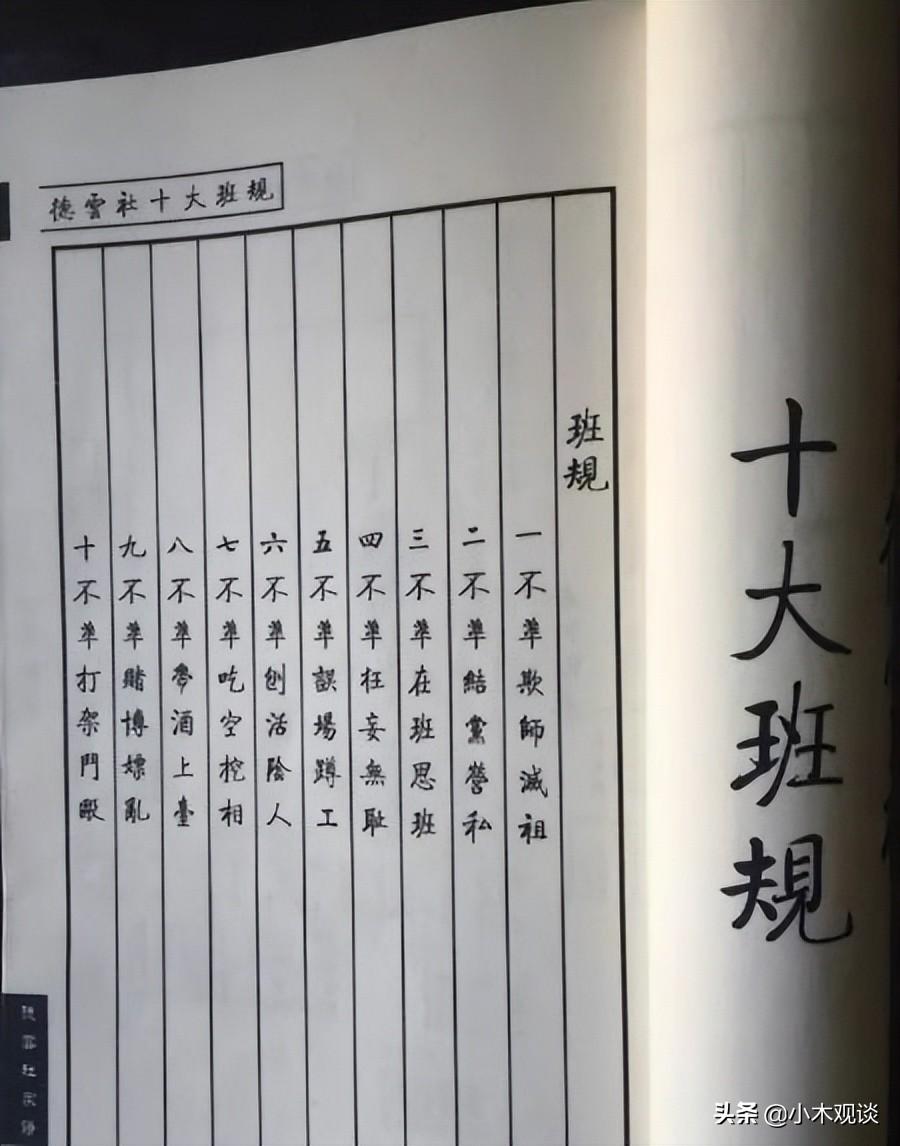 十大班規
德雲社十大班規
班規
一不準欺師滅祖
二不準結黨營私
三不準在班思班
四不準狂妄無恥
五不準誤場蹲工
六不準刨活陰人
七不準吃空挖相
八不準帶酒上臺
九不準賭博嫖亂
十不準打架鬥毆
头条 @小木观谈